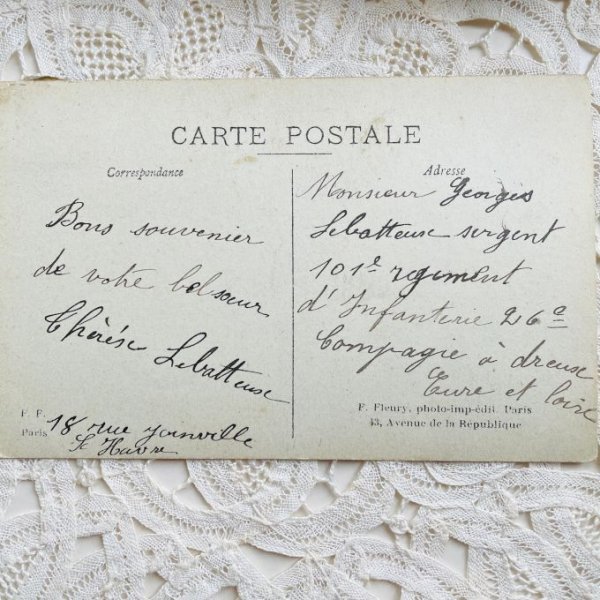 CARTE POSTALE
Correspondance
Bons souvenier
de votre bel sœur
Thérése Lebatteuse
18 rue joinville
le Havre
F. F.
Paris
Adresse
Monsieur Georges
Lebatteuse sergent
101e regiment
d'Infanterie 26e
Compagie à dreuse
Eure et loire
F. Fleury, photo-imp-édit. Paris
43, Avenue de la République